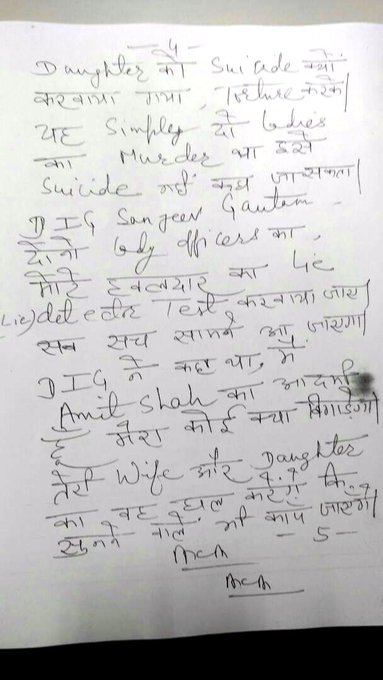 - 4 -
Daughter को Suicide क्यों
करवाया गया, Torture करके।
यह Simply दो Ladies
का Murder था इसे
Suicide नहीं कहा जा सकता।
DIG Sanjeev Gautam,
दोनो Lady officers का,
मोटे हवलदार का Lie
(Lie) detector Test करवाया जाए।
सब सच सामने आ जाएगा।
DIG ने कहा था, मैं
Amit Shah का आदमी
हूँ मेरा कोई क्या बिगाड़ेगा।
तेरी Wife और Daughter
का वह हाल करेंगे कि,
सुनने वाले भी कांप जाएंगे।
- 5 -